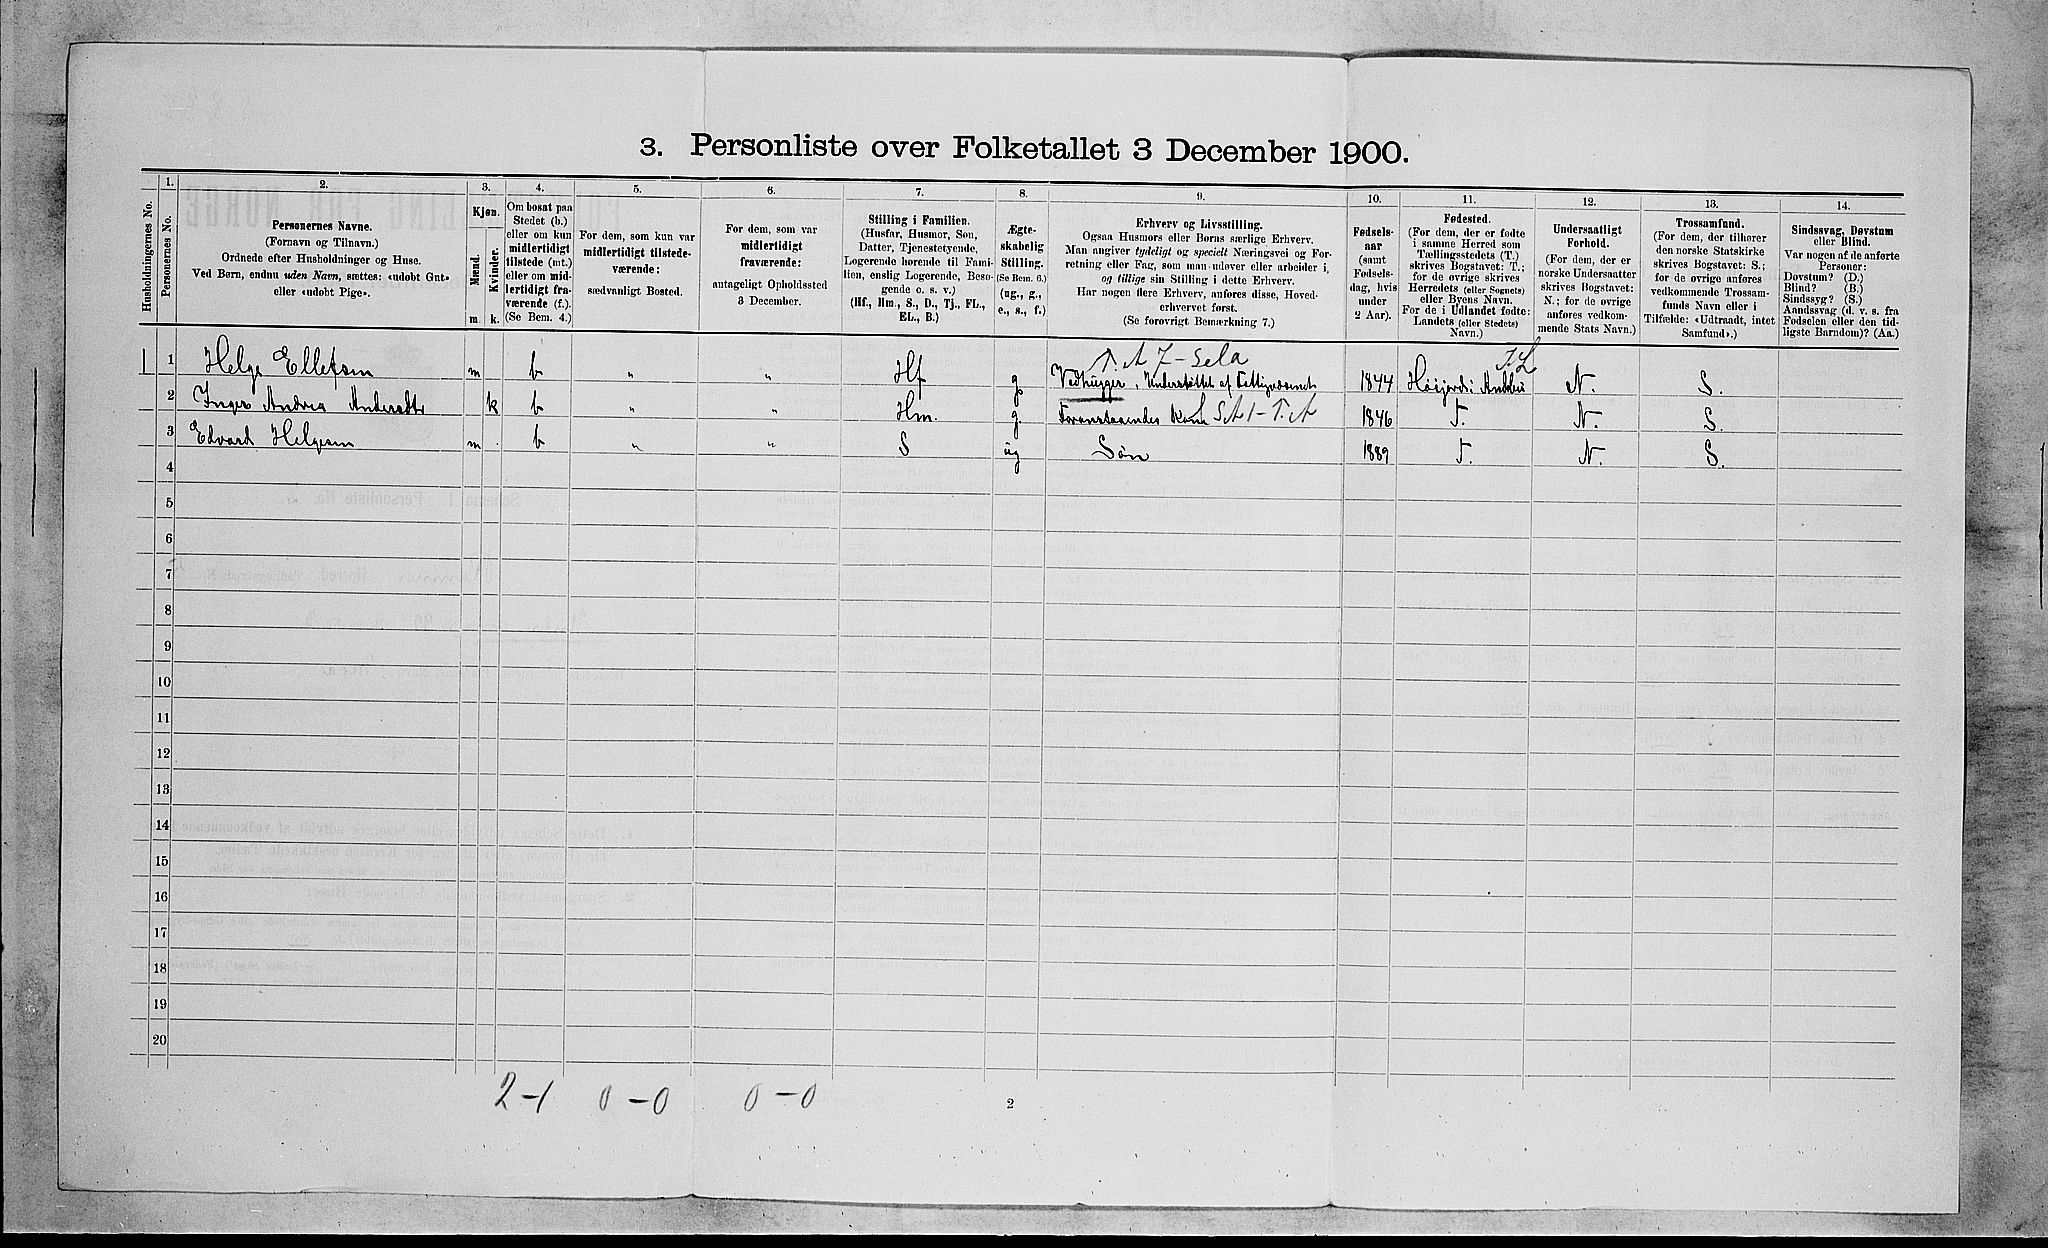 3. Personliste over Folketallet 3 December 1900.
1. 2. 3. 4. 5. 6. 7. 8. 9. 10. 11. 12. 13. 14.
Husholdningernes No.
Personernes No.
Personernes Navne.
(Fornavn og Tilnavn.)
Ordnede efter Husholdninger og Huse.
Ved Børn, endnu uden Navn, sættes: «udobt Gut»
eller «udobt Pige».
Kjøn.
Mænd.
Kvinder.
m. k.
Om bosat paa
Stedet (b.)
eller om kun
midlertidigt
tilstede (mt.)
eller om mid-
lertidigt fra-
værende (f.).
(Se Bem. 4.)
For dem, som kun var
midlertidigt tilstede-
værende:
sædvanligt Bosted.
For dem, som var
midlertidigt
fraværende:
antageligt Opholdssted
3 December.
Stilling i Familien.
(Husfar, Husmor, Søn,
Datter, Tjenestetyende,
Logerende hørende til Fami-
lien, enslig Logerende, Besø-
gende o. s. v.)
(Hf., Hm., S., D., Tj., FL.,
EL., B.)
Ægte-
skabelig
Stilling.
(Se Bem. 6.)
(ug., g.,
e., s., f.)
Erhverv og Livsstilling.
Ogsaa Husmors eller Børns særlige Erhverv.
Man angiver tydeligt og specielt Næringsvei og For-
retning eller Fag, som man udøver eller arbeider i,
og tillige sin Stilling i dette Erhverv.
Har nogen flere Erhverv, anføres disse, Hoved-
erhvervet først.
(Se forøvrigt Bemærkning 7.)
Fødsels-
aar
(samt
Fødsels-
dag, hvis
under
2 Aar).
Fødested.
(For dem, der er fødte
i samme Herred som
Tællingsstedets (T.)
skrives Bogstavet: T.;
for de øvrige skrives
Herredets (eller Sognets)
eller Byens Navn.
For de i Udlandet fødte:
Landets (eller Stedets)
Navn.)
Undersaatligt
Forhold.
(For dem, der er
norske Undersaatter
skrives Bogstavet:
N.; for de øvrige
anføres vedkom-
mende Stats Navn.)
Trossamfund.
(For dem, der tilhører
den norske Statskirke
skrives Bogstavet: S.;
for de øvrige anføres
vedkommende Trossam-
funds Navn eller i
Tilfælde: «Udtraadt, intet
Samfund».)
Sindssvag, Døvstum
eller Blind.
Var nogen af de anførte
Personer:
Døvstum? (D.)
Blind? (B.)
Sindssyg? (S.)
Aandssvag (d. v. s. fra
Fødselen eller den tid-
ligste Barndom)? (Aa.)
1 1 Helge Ellefsen m b " " Hf g Vedhugger, Understøttet af Fattigvæsenet 1844 Høijord i Andebu N. S.
2 Inger Andrea k b " " Hm. g. Foranstaaendes Kone 1846 T. N. S.
3 Edvard Helgesen m b " " S ug Søn 1889 T. N. S.
4
5
6
7
8
9
10
11
12
13
14
15
16
17
18
19
20
2-1 0-0 0-0
2